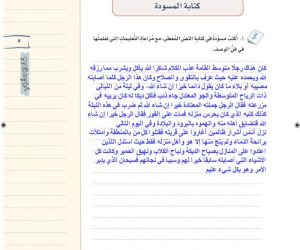 كتابة المسودة
١. أكتبُ مسوّدة في كتابة النص المُعطى، مع مُراعاة التعليمات التي تعلمتها
في فنّ الوصف.
كان هناك رجلا متوسط القامة عذب الكلام شاكرا الله يأكل ويشرب مما رزقه
الله ويحمده عليه حيث عرف بالتقوى والصلاح وكان هذا الرجل كلما اصابته
مصيبه أو بلاء ما كان يقول دائما خيرا إن شاء الله، وفي ليلة من الليالي
ذات الرياح المتوسطة والجو المعتدل جاء ذئب فأكل ديكا له كان يربيه في
مزرعته فقال الرجل جملته المعتادة خيرا إن شاء الله ثم ضرب في هذه الليلة
كذلك كلبه الذي كان يحرس منزله فمات على الفور فقال الرجل خيرا إن شاء
الله فتضايق أهله منه واتهموه بالبرود والبلادة وفي اليوم التالي
نزل أناس أشرار ظالمين أغاروا على قريته فقتلوا كل من بالمنطقة وامتلأت
برائحة الدماء ولم ينج منهم إلا هو وأهل منزله فقط حيث استدل اللذين
اعتدوا على المنازل بصياح الديكة ونباح الكلاب ونهيق الحمير وكانت كل
الأشياء التي اصابته سابقا خيرا لهم وسببا في نجاتهم فسبحان الذي يدبر
الأمر وهو بكل شيء عليم